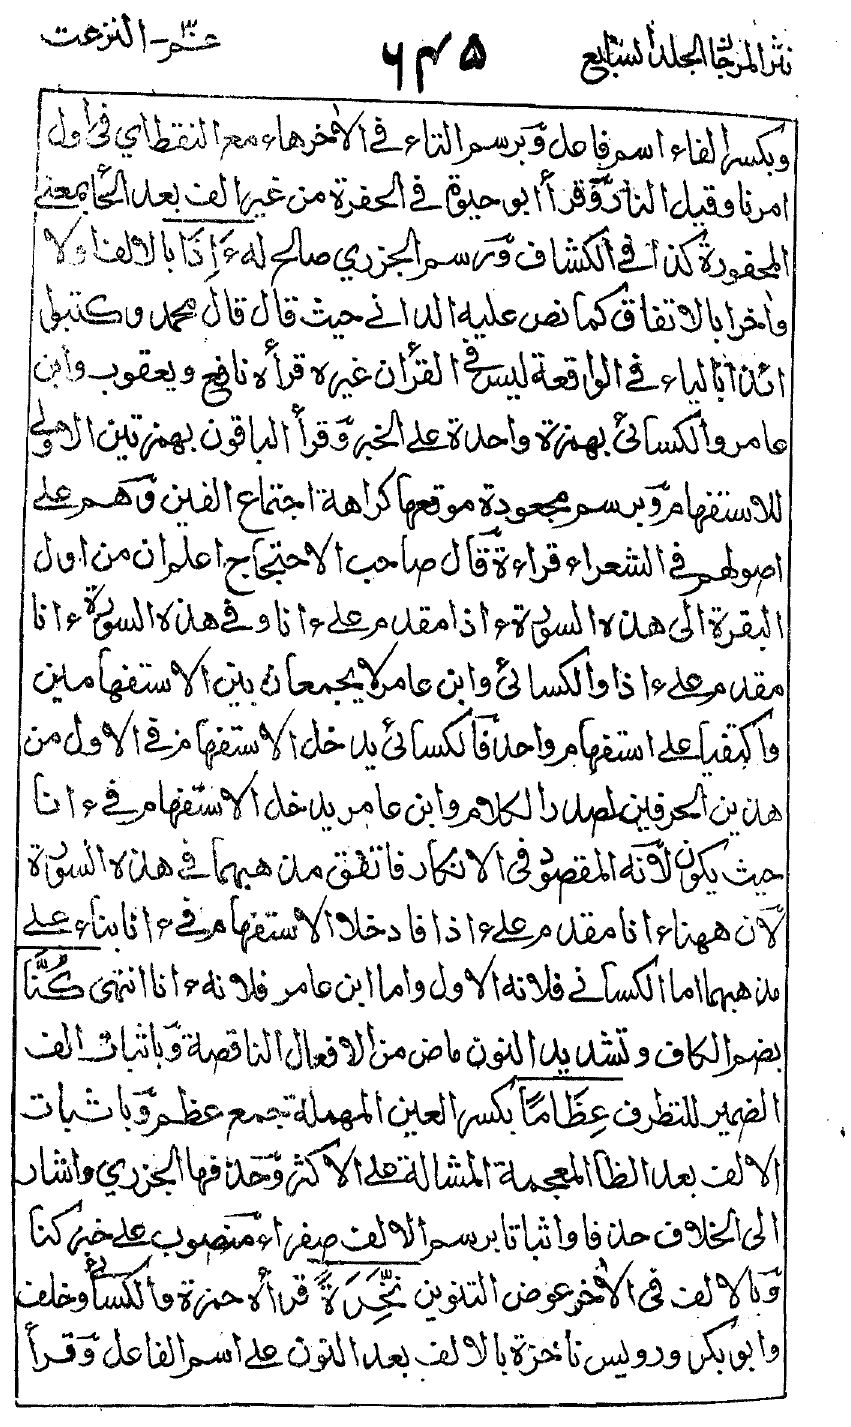 نثر المرجان المجلد السابع ٦٤٥ عم ٣٠ - النزعت
وبكسر الفاء اسم فاعل وبرسم التاء في الاٰخر هاء مع النقط اي في اول
امرنا وقيل النار وقرأ ابو حيوة في الحفرة من غير الف بعد الحا بمعنى
المحفورة كذا في الكشاف ورسم الجزري صالح له ءَاِذَا بالالف اولا
واٰخرا بالاتفاق كما نص عليه الداني حيث قال قال محمد وكتبوا
ائذا بالياء في الواقعة ليس في القرأن غيره قرأه نافع ويعقوب وابن
عامر والكسائي بهمزة واحدة على الخبر وقرأ الباقون بهمزتين الاولى
للاستفهام وبرسم مجعودة موقعها كراهة اجتماع الفين وهم على
اصولهم في الشعراء قراءة قال صاحب الاحتجاج اعلم ان من اول
البقرة الى هذه السورة ءاذا مقدم على ءانا وفي هذه السورة ءانا
مقدم على ءاذا والكسائي وابن عامر لا يجمعان بين الاستفهامين
واكتفيا على استفهام واحد فالكسائي يدخل الاستفهام في الاول من
هذين الحرفين لصدر الكلام وابن عامر يدخل الاستفهام في ءانا
حيث يكون لانه المقصود في الانكار فاتفق مذهبهما في هذه السورة
لان ههنا ءانا مقدم على ءاذا فادخلا الاستفهام في ءانا بناء على
مذهبهما اما الكسائي فلانه الاول واما ابن عامر فلانه ءانا انتهى كُنَّا
بضم الكاف وتشديد النون ماض من الافعال الناقصة وباثبات الف
الضمير للتطرف عِظَامًا بكسر العين المهملة جمع عظم وباثبات
الالف بعد الظا المعجمة المشالة على الاكثر وحذفها الجزري واشار
الى الخلاف حذفا واثباتا برسم الالف صفراء منصوب على خبر كنا
وبالالف في الاٰخر عوض التنوين نَّخِرَةً قرأه حمزة والكسائي وخلف
وابو بكر ورويس ناخرة بالالف بعد النون على اسم الفاعل وقرأ